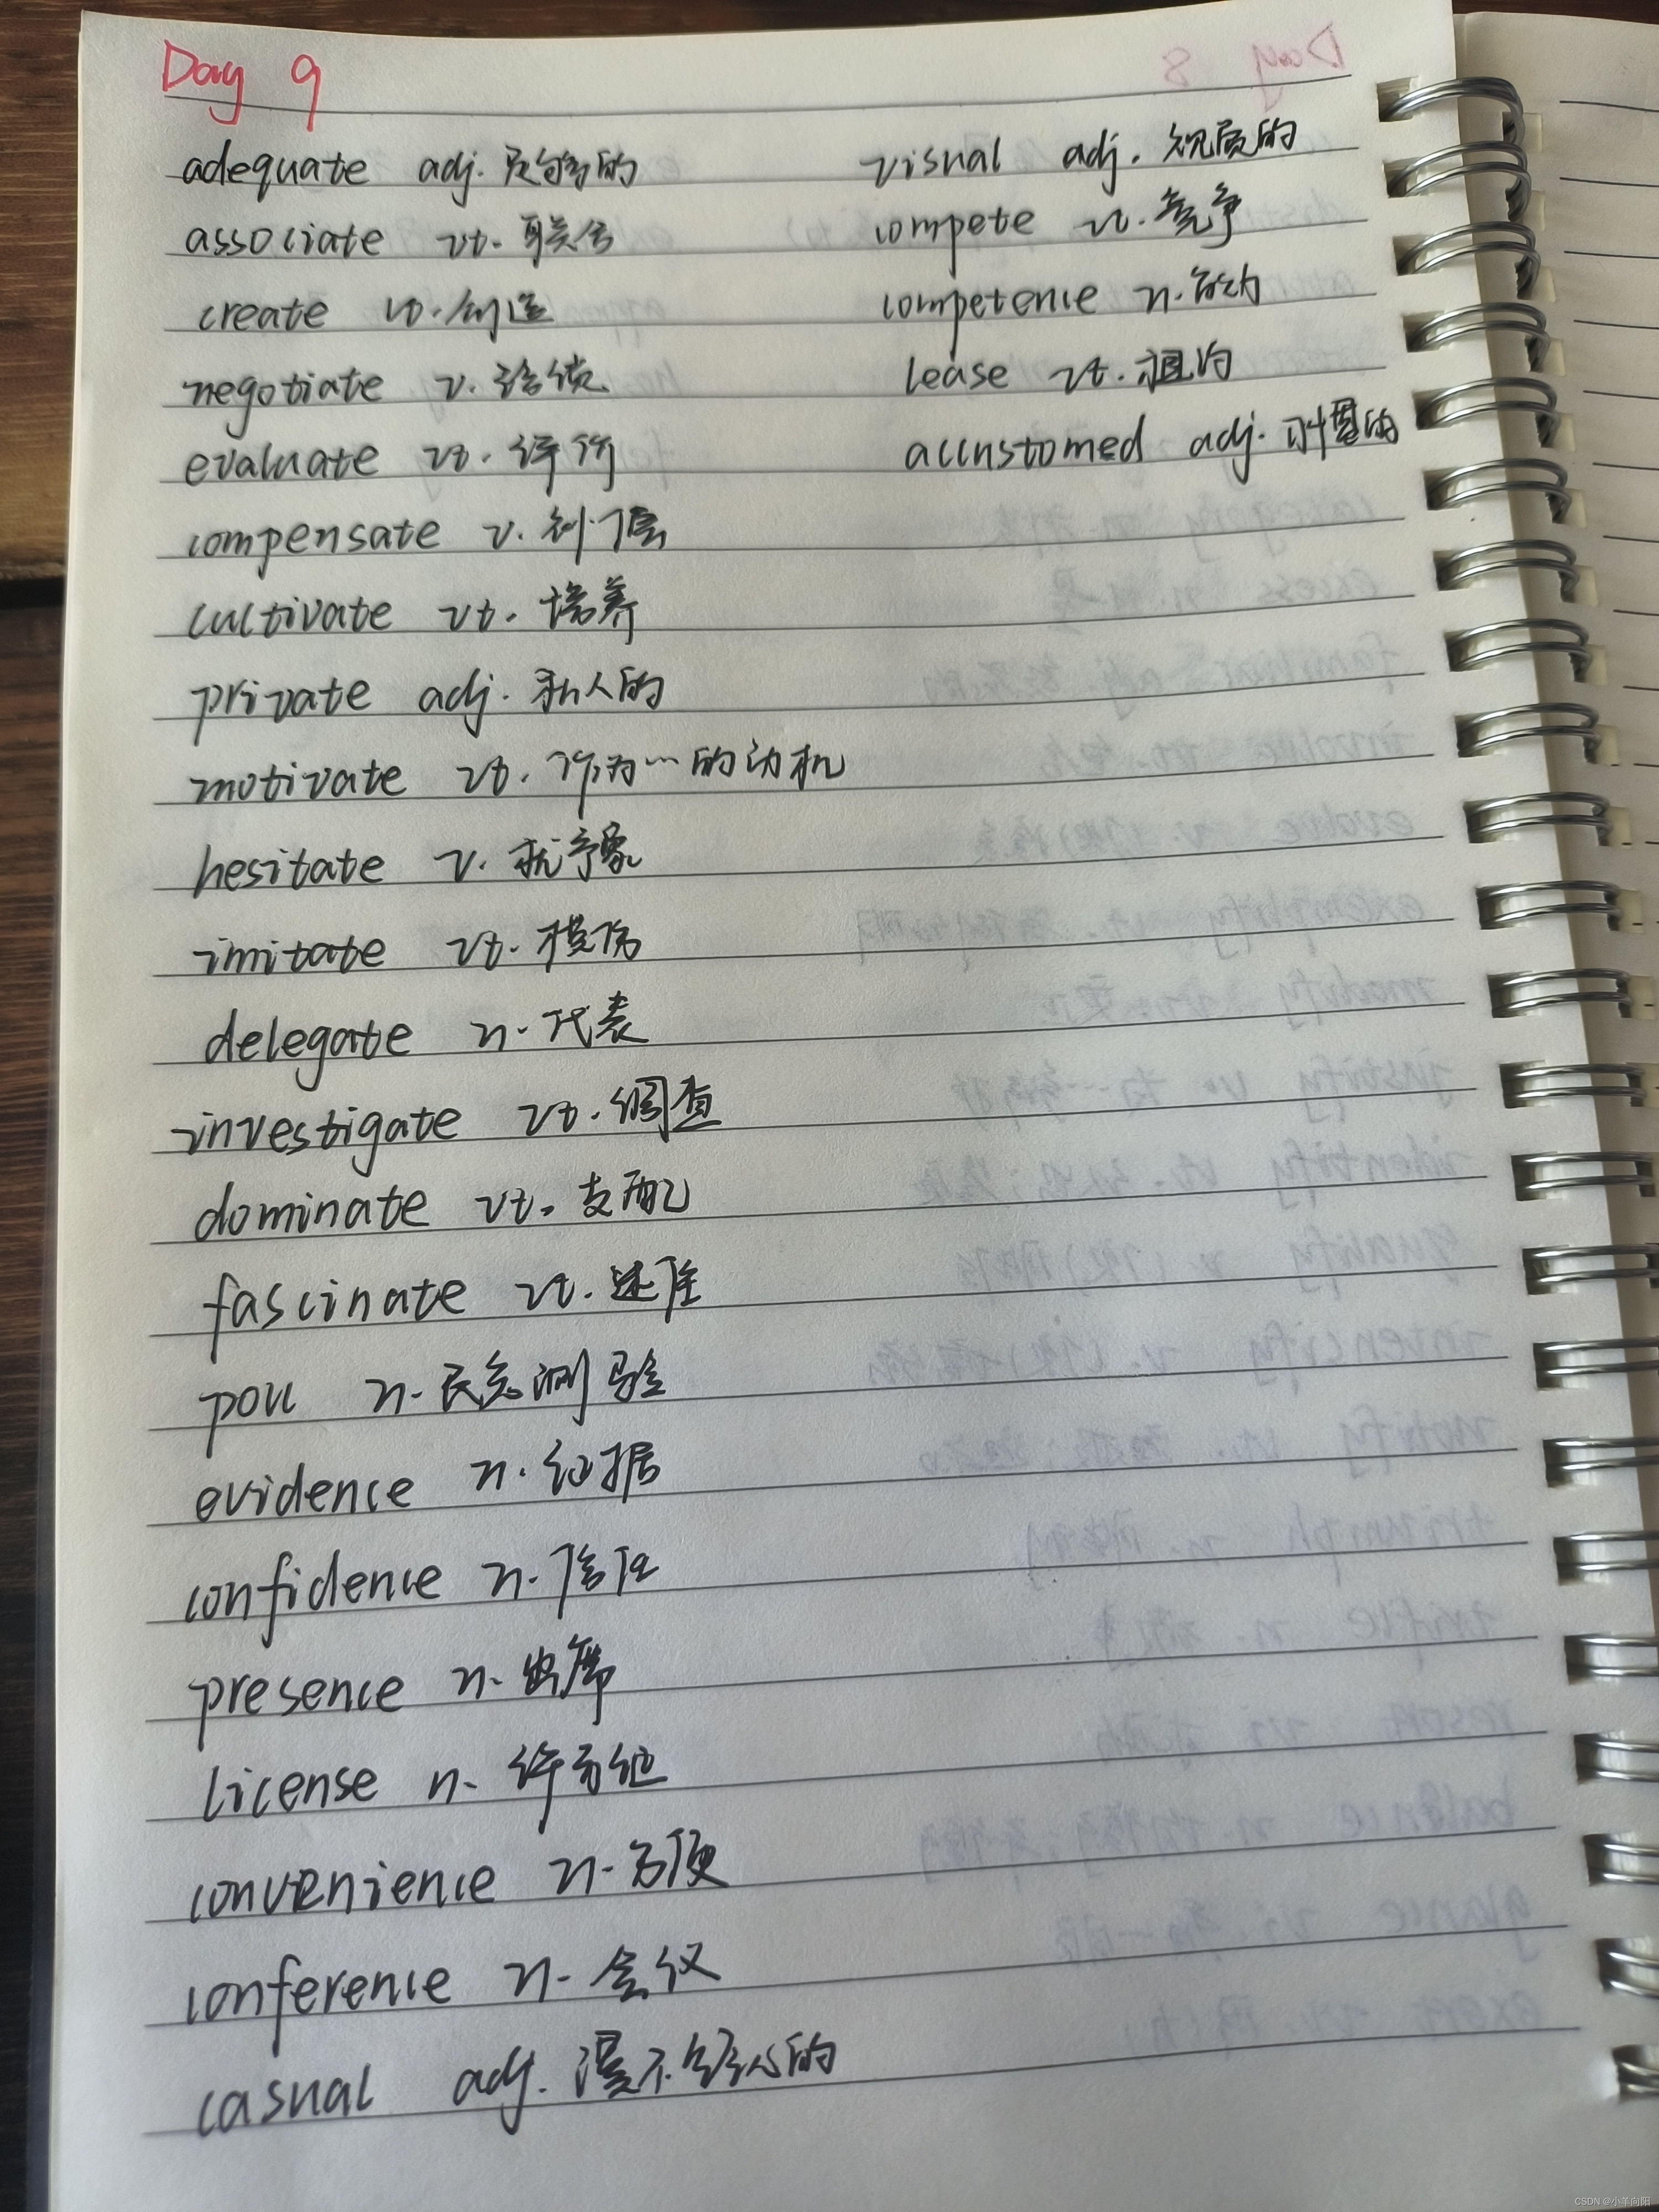 Day 9
adequate adj. 足够的
associate vt. 联合
create vt. 创造
negotiate v. 洽谈
evaluate vt. 评价
compensate v. 补偿
cultivate vt. 培养
private adj. 私人的
motivate vt. 作为…的动机
hesitate v. 犹豫
imitate vt. 模仿
delegate n. 代表
investigate vt. 调查
dominate vt. 支配
fascinate vt. 迷住
poll n. 民意测验
evidence n. 证据
confidence n. 信任
presence n. 出席
license n. 许可证
convenience n. 方便
conference n. 会议
casual adj. 漫不经心的
visual adj. 视觉的
compete vt. 竞争
competence n. 能力
lease vt. 租约
accustomed adj. 习惯的
CSDN @小羊向阳